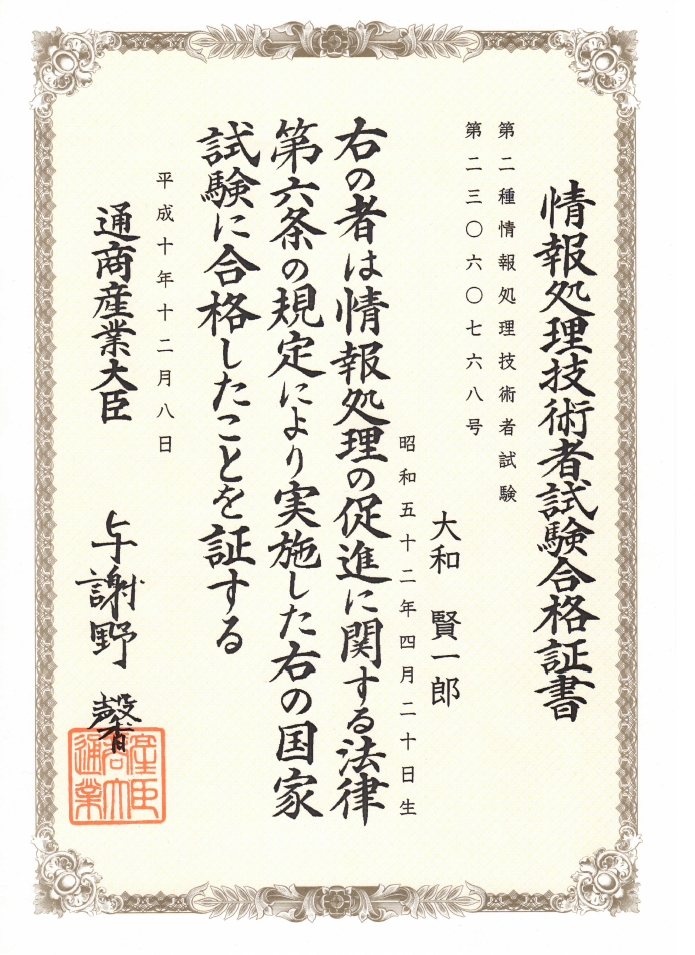 情報処理技術者試験合格証書
第二種情報処理技術者試験
第二三〇六〇七六八号
大和 賢一郎
昭和五十二年四月二十日生
右の者は情報処理の促進に関する法律
第六条の規定により実施した右の国家
試験に合格したことを証する
平成十年十二月八日
通商産業大臣
与謝野 馨